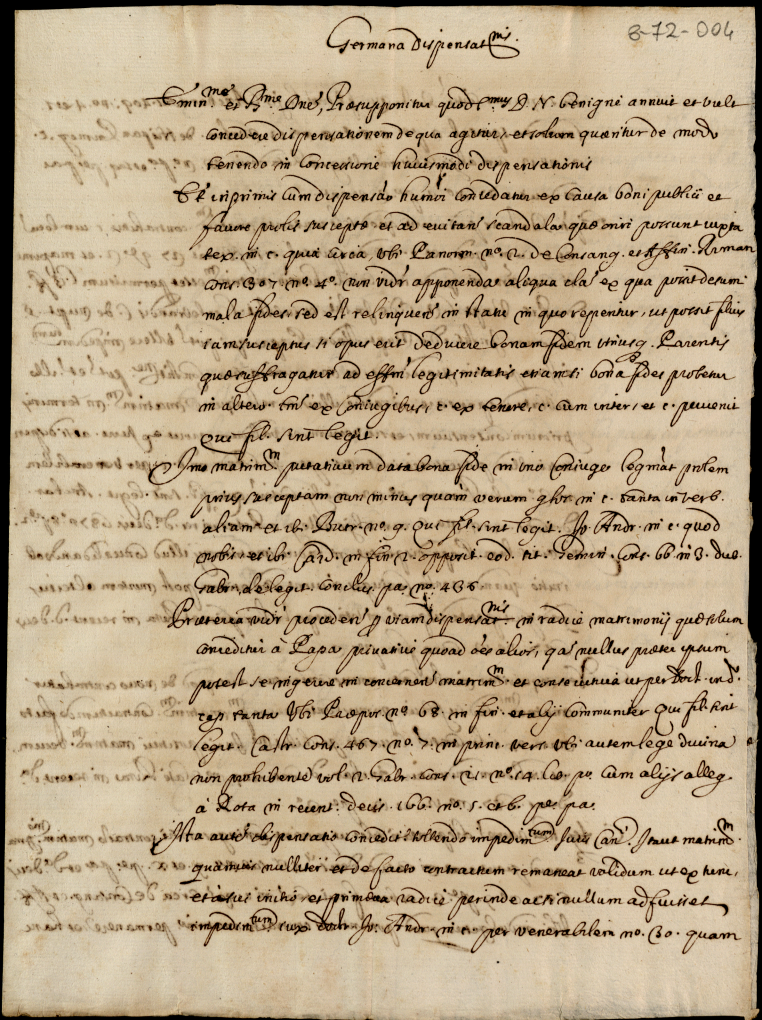 8-72-004
Germana Dispensat.nis
Emin.me et R.me Dne, Præsupponitur quod S.mus D. N. benigne annuit et vult
concedere dispensationem de qua agitur, et solum quæritur de modo
tenendo in concessione huiusmodi dispensationis
Et inprimis cum dispensão humõi concedatur ex causa boni publici et
favore prolis susceptæ et ad evitand. scandala quæ oriri possunt iuxta
tex. in c. quia circa, ubi Panorm. no. 2. de Consang. et Affin. Ruman
Cons. 307. no. 4o. non vidr apponenda aliqua cla.s ex qua possit desumi
mala fides, sed est relinquens in statu in quo reperitur, ut possit filius
iam susceptus si opus erit deducere bonam fidem utriusq. Parentis
quæ suffragatur ad effm legitimitatis etiam si bona fides probetur
in altero tm ex Coniugibus, c. ex tenore, c. cum inter, et c. pervenit
Qui fil. sint legit.
Imo matrim.m putativum data bona fide in uno coniuge legitimat prolem
prius susceptam non minus quam verum glos. in c. tanta in verb.
aliam et ib. Butr. no. 9. Qui fil. sint legit. Jo. Andr. in c. quod
nobis, et ibi Card. in fin 2. opposit. eod. tit. Gemin. Cons. 66. in 3. dub.
Gabr. de legit. Conclus. pa. no. 436
Præterea vidr procedere p viam dispensat.nis in radice matrimonij quæ solum
conceditur à Papa privative quoad oẽs alios, qa nullus præter ipsum
potest se ingerere in concernen. matrim.m et consecutiva ut per Doct. in d.
cap. tanta ubi Præpos. no. 68. in fin. et alij communiter Qui fil. sint
legit. Castr. Cons. 467. no. 7. in princ. vers. ubi autem lege divina
non prohibente vol. 2. Gabr. cons. 21. no. 14. lib. po. cum alijs alleg.
à Rota in recent. decis. 166. no. 5. et 6. pe. pa.
Ista autẽ dispensatio conceditr tollendo impedim.tum Juris Can.ci Itaut matrim.m
quantuvis nulliter et de facto contractum remaneat validum ut ex tunc,
et à sui initio, et primæva radice perinde ac si nullum adfuisset
impedim.tum iux. Doctr. Jo: Andr. in c. per venerabilem no. 30. quam